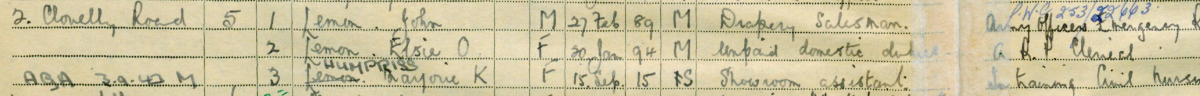 2. Clovelly Road 5 1 Lemon John M 27 Feb 89 M Drapery Salesman. Army Officers Emergency
P.W.C. 253/22663
2 Lemon Elsie O. F 20 Jan 94 M Unpaid domestic duties A. R. P. Clerical
HUMPRISS
3 Lemon Marjorie K F 15 Sep. 15 S Showroom assistant. In training Civil Nursing